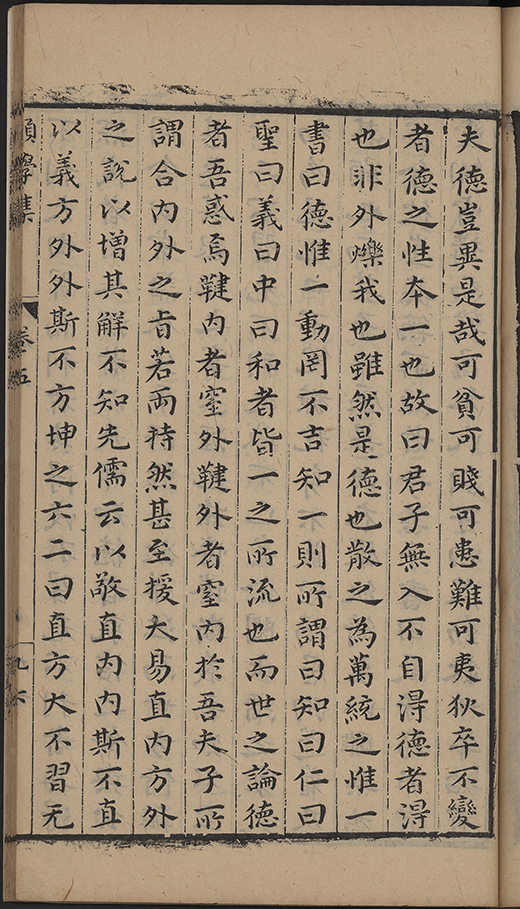 夫德豈異是哉可貧可賤可患難可夷狄卒不變
者德之性本一也故曰君子無入不自得德者得
也非外爍我也雖然是德也散之為萬統之惟一
書曰德惟一動罔不吉知一則所謂曰知曰仁曰
聖曰義曰中曰和者皆一之所流也而世之論德
者吾惑焉鞬內者窒外鞬外者窒內於吾夫子所
謂合內外之旨若兩持然甚至援大易直內方外
之說以增其解不知先儒云以敬直內內斯不直
以義方外外斯不方坤之六二曰直方大不習无
學集
卷五
九六